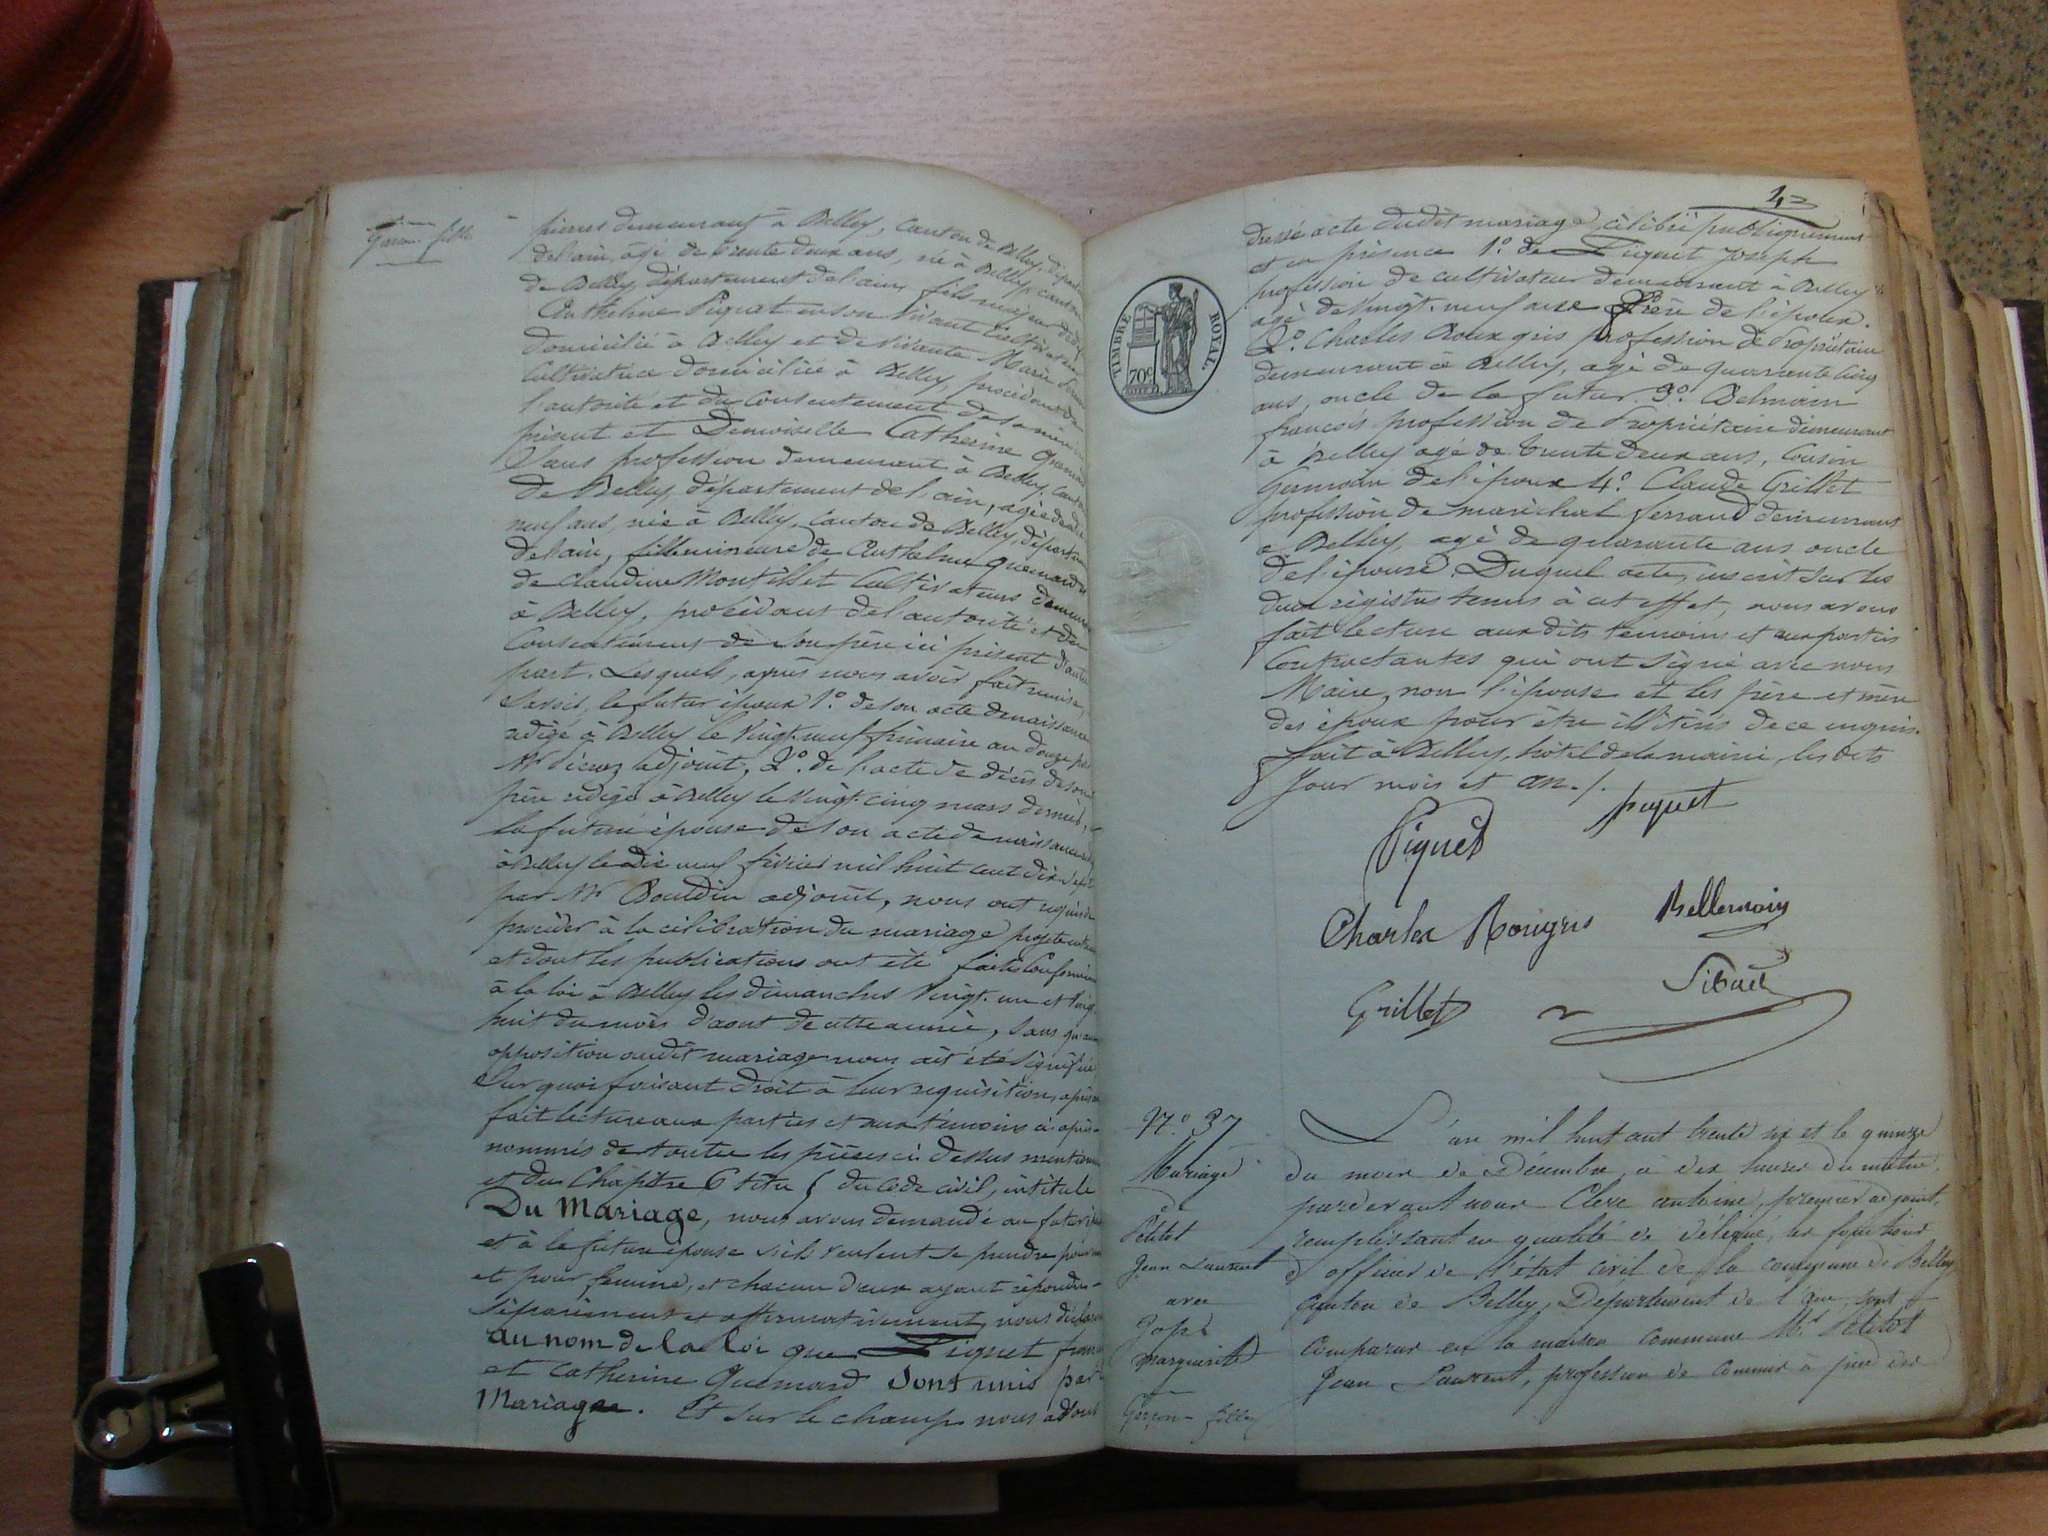 Garçon fille
pierres demeurant à Belley, Canton de Belley, départ
de l'ain, âgé de trente deux ans, né à Belley, canton
de Belley, département de l'ain, fils majeur de
Anthelme Piquet en son vivant Cultivateur
domicilié à Belley et de vivante Marie
Cultivatrice domiciliée à Belley, procédant de
l'autorité et du Consentement de sa mère ici
présent et Demoiselle Catherine Quemard
Sans profession demeurant à Belley, Canton
de Belley, département de l'ain, agée de dix
neuf ans, née à Belley, Canton de Belley, départem
de l'ain, fille mineure de Anthelme Quemard et
de Claudine Montillet Cultivateurs demeur
à Belley, procédant de l'autorité et du
Consentement de son père ici présent d'autre
part. Lesquels, après nous avoir fait remise,
Savoir, le futur époux 1.º de son acte de naissance
rédigé à Belley le vingt neuf frimaire an douze par
Mr adjoint, 2.º de l'acte de décès de son
père rédigé à Belley le vingt cinq mars dernier,
la future épouse de son acte de naissance
à Belley le dix neuf février mil huit cent dix sept
par Mr Bouldin adjoint, nous ont requis de
procéder à la célébration du mariage projeté entre
et dont les publications ont été faites Conformém
à la loi à Belley les dimanches vingt-un et vingt
huit du mois d'aout de cette année, Sans qu'aucune
opposition au dit mariage nous ait été signifiée
Sur quoi faisant droit à leur requisition, après
fait lecture aux parties et aux témoins ci-après
nommés de toutes les pièces ci-dessus mentionn
et du Chapitre 6 titre 5 du Code civil, intitulé
Du Mariage, nous avons demandé au futur époux
et à la future épouse s'ils veulent se prendre pour mari
et pour femme, et chacun d'eux ayant répondu
Séparément et affirmativement, nous déclarons
au nom de la loi que Piquet
et Catherine Quemard Sont unis par
Mariage. Et sur le champ nous avons
42
TIMBRE ROYAL.
70c
dressé acte dudit mariage célébré publiquement
et en présence 1.º de Piquet Joseph
profession de cultivateur demeurant à Belley
agé de vingt-neuf ans frère de l'époux.
2.º Charles Rouxgris profession de Propriétaire
demeurant à Belley, agé de quarante cinq
ans, oncle de la futur. 3.º Belmain
françois profession de Propriétaire demeurant
à Belley agé de trente deux ans, Cousin
Germain de l'époux 4.º Claude Grillet
profession de maréchal ferrand demeurant
à Belley, agé de quarante ans oncle
de l'épouse. Duquel acte, inscrit sur les
deux registres tenus à cet effet, nous avons
fait lecture aux dits temoins et aux parties
Contractantes qui ont signé avec nous
Maire, non l'épouse et les père et mère
des époux pour être illitérés de ce enquis.
fait à Belley, hôtel de la mairie, les dits
Jour mois et an./.
Piquet piquet
Charles Rougris Bellemain
Grillet Sibuet
N.º 37
Mariage
de
Petitot
Jean Laurent
avec
Marguerite
Garçon - fille
L'an mil huit cent trente six et le quinze
du mois de Décembre, à dix heures du matin,
pardevant nous Clerc antoine, premier adjoint,
remplissant en qualité de délégué, les fonctions
d'officier de l'état civil de la commune de Belley
Canton de Belley, Département de l'ain, sont
comparus en la maison commune Mr. Petitot
Jean Laurent, profession de commis à pied des